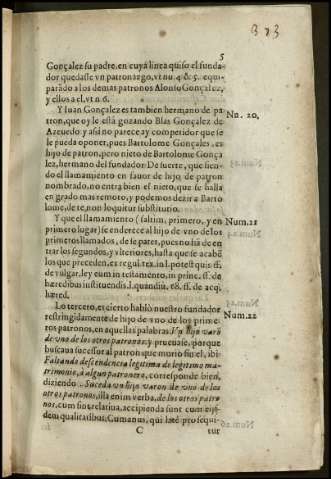 373
5
Gonçalez su padre, en cuya linea quiso el funda-
dor quedasse vn patronazgo, vt nu. 4 & 5. equi-
parādo a los demas patronos Alonso Gonçalez,
y ellos a el, vt n. 6.
Y Iuan Gonçalez es tambien hermano de pa-
tron, que oy le està gozando Blas Gonçalez de
Azeuedo: y asi no parece ay competidor que se
le pueda oponer, pues Bartolome Gonçales, es
hijo de patron, pero nieto de Bartolome Gonça
lez, hermano del fundador: De suerte, que sien-
do el llamamiento en fauor de hijo de patron
nombrado, no entra bien el nieto, que se halla
en grado mas remoto, y podemos dezir a Barto
lome, de te, non loquitur substitutio.
Nu. 20.
Y que el llamamiento (saltim, primero, y en
primero lugar) se enderece al hijo de vno de los
primeros llamados, de se patet, pues no hà de en
trar los segundos, y vlteriores, hasta que se acabē
los que preceden, ex regul. tex. in l. potest quis ff.
de vulgar, ley cum in testamento, in princ. ff. de
hæredibus instituendis, l. quandiu, 68. ff. de acq.
hæred.
Num. 21
Lo tercero, es cierto hablò nuestro fundador
restringidamente de hijo de vno de los prime
ros patronos, en aquellas palabras: Vn hijo varō
de vno de los otros patronos: y prueuase, porque
buscaua successor al patron que murio sin el, ibi:
Faltando descendencia legitima de legitimo ma-
trimonio, à algun patronero, corresponde bien,
diziendo: Suceda vn hijo varon de vno de los
otros patronos, illa enim verba, de los otros patro-
nos, cum sint relatiua, accipienda sunt cum eis-
dem qualitatibus, Cumanus, qui latè prosequi-
Num. 22
C
tur